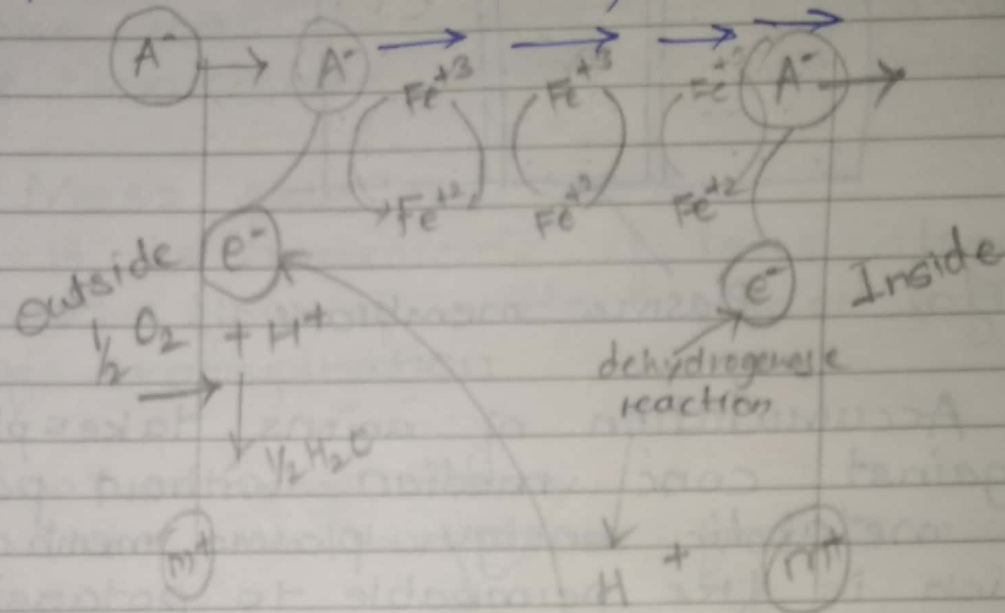 A⁻ → A⁻ → → → → A⁻ →
Fe⁺³ Fe⁺³ Fe
Fe⁺² Fe Fe⁺²
Outside e⁻ e⁻ Inside
½ O₂ + H⁺
dehydrogenase
reaction
→ ↓ ½ H₂O
m⁺ H + m⁺